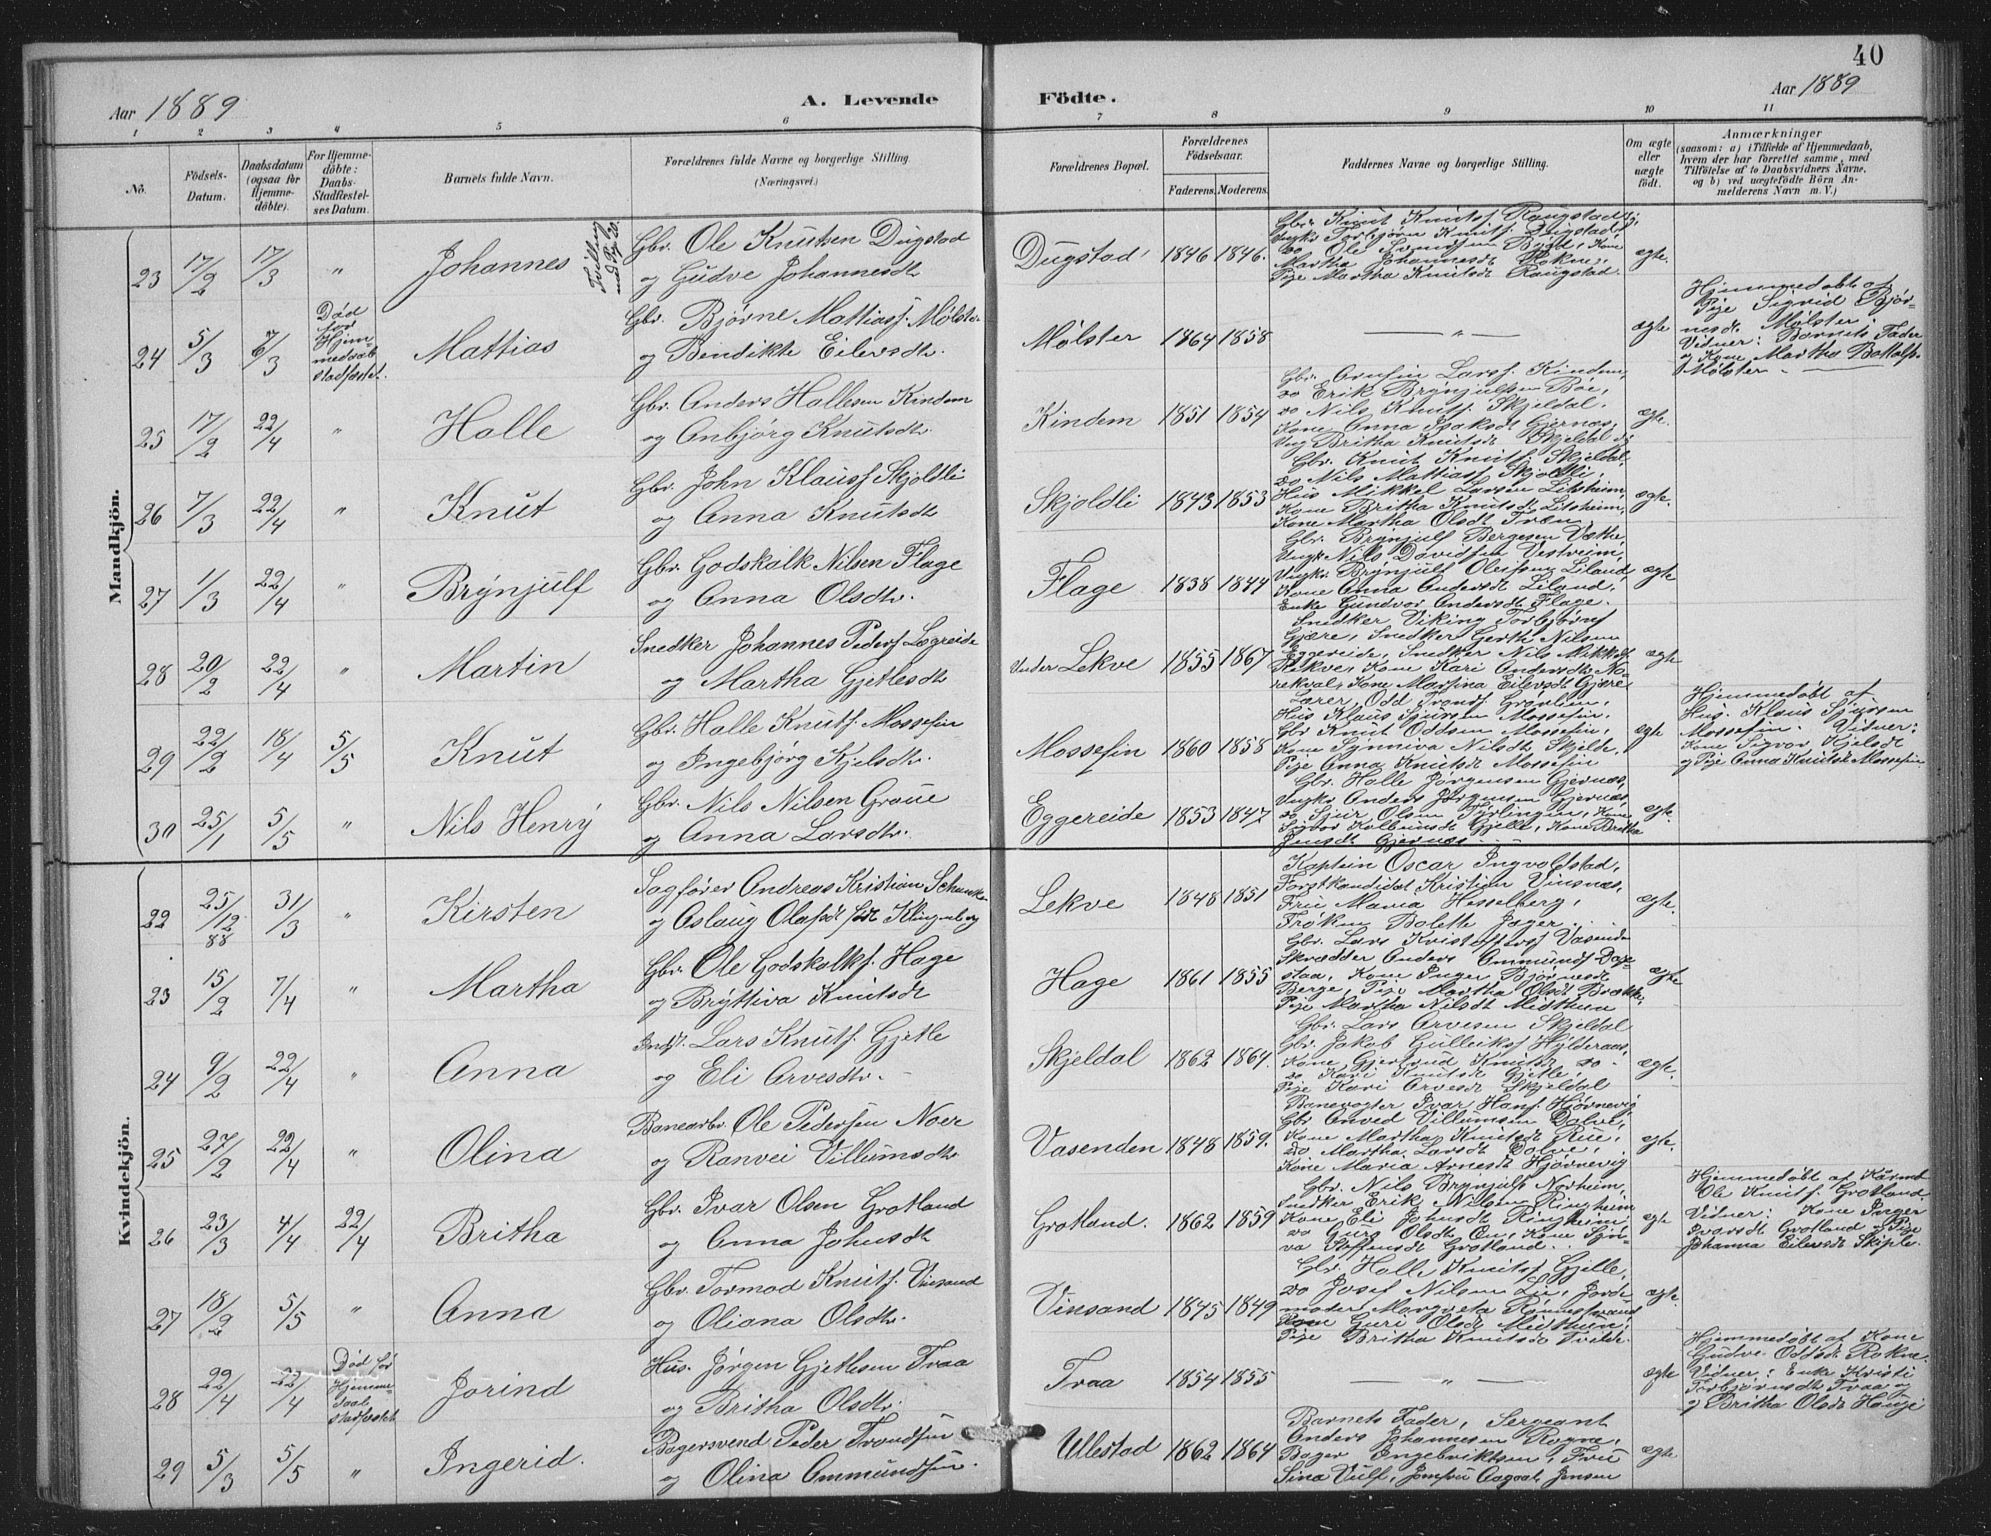 40
Aar 1889
A. Levende
Födte.
Aar 1889
1 2 3 4 5 6 7 8 9 10 11
No.
Födsels-Datum.
Daabsdatum (ogsaa for Hjemme-döbte).
For Hjemme-döbte: Daabs-Stadfæstel-ses Datum.
Barnets fulde Navn.
Forældrenes fulde Navne og borgerlige Stilling.
(Næringsvei.)
Forældrenes Bopæl.
Forældrenes Födselsaar.
Faderens. Moderens.
Faddernes Navne og borgerlige Stilling.
Om ægte eller uægte födt.
Anmærkninger
(saasom: a) i Tilfælde af Hjemmedaab, hvem der har forrettet samme, med Tilföielse af to Daabsvidners Navne, og b) ved uægtefödte Börn An-melderens Navn m. V.)
Mandkjön.
23 17/2 17/3 " Johannes Tvilling med Pge 20.
Gbr. Ole Knutsen Dugstad
og Gudve Johannesdt
Dugstad 1846 1846.
Gbr. Knut Knutsf. Raugstad,
Ungkr Torbjörn Knutsf. Dugstad,
Martha Johannesdt Rokne,
Pige Martha Knutsdt Raugstad.
ægte.
24 5/3 6/3 Död for Hjem-medaab stadfæstet.
Mattias
Gbr. Bjørne Mattiasf. Mølster
og Bendikte Eilevsdtr.
Mølster 1864 1858 — " — ægte
Hjemmedøbt af
Pige Sigrid Bjør-
nesdt. Mølster.
Vidner: Barnets Fader
og Kone Martha Bottolfs
Mølster.
25 17/2 22/4 " Halle
Gbr. Anders Hallesen Kindem
og Anbjörg Knutsdtr.
Kindem 1851 1854
Gbr. Arnfin Larsf. Kindem,
do Erik Brynjulfsen Bøe,
do Nils Knutsf. Skjeldal.
Kone Anna Isaksdt Gjernæs,
Ung. Britha Knutsdt Skjeldal
ægte.
26 7/3 22/4 " Knut
Gbr. John Klausf Skjoldli
og Anna Knutsdt
Skjoldli 1843 1853
Gbr. Knut Knutsf Skjeldal,
do Nils Mattiasf Skjoldli,
Hus Mikkel Larsen Litsheim,
Kone Britha Knutsdt Litsheim,
Kone Martha Olsdt Tven
ægte.
27 1/3 22/4 " Brynjulf
Gbr. Godskalk Nilsen Flage
og Anna Olsdtr.
Flage 1838 1844
Gbr. Brynjulf Bergesen Væthe,
Ungk. Nils Davidsen Vestreim,
Ungkr. Brynjulf Oleisen Liland,
Kone Anna Andersdt Liland,
Enke Gundvor Andersdt Flage.
ægte
28 20/2 22/4 " Martin
Snedker Johannes Pedersf Løgreide
og Martha Gjetlesdtr
Under Lekve 1855 1867
Snedker Viking Torbjørnsf
Gjære, Snedker Gerth Nilsen
Eggereide, Snedker Nils Mikkelsf
Lekve, Kone Kari Andersdt No-
rekval, Kone Marsina Eilevsdt Gjære,
ægte
29 22/2 18/4 5/5 Knut
Gbr. Halle Knutsf. Mossefin
og Ingebjörg Kjelsdtr.
Mossefin 1860 1858
Lærer, Odd Trondsf. Grovlien,
Hus Klaus Sjursen Mossefin,
Gbr Knut Oddsen Mossefin,
Kone Synniva Nilsdt Skjelde,
Pige Anna Knutsdt Mossefin
ægte
Hjemmedøbt af
Hus. Klaus Sjursen
Mossefin. Vidner:
Kone Sigvor Kjelsdt
og Pige Anna Knutsdt Mossefin.
30 25/1 5/5 " Nils Henry
Gbr. Nils Nilsen Grove
og Anna Larsdtr.
Eggereide 1853 1847
Gbr. Halle Jørgensen Gjernæs,
Ungkr. Anders Jørgensen Gjernæs,
do Sjur Olsen Tyrlingen, Kone
Sigvor Kolbensdt Gjelle, Kone Britha
Jensdt Gjernæs
ægte.
Kvindekjön.
22 25/12 88 31/3 " Kirsten
Sagfører Andreas Kristian Schanke
og Aslaug Olafsdt född Klingenberg
Lekve 1848 1851
Kaptein Oscar Ingvaldstad,
Forstkandidat Kristian Vinsnæs,
Frue Maria Hesselberg,
Frøken Bolette Jager.
ægte.
23 15/2 7/4 " Martha
Gbr. Ole Godskalksf. Hage
og Bryttiva Knutsdt
Hage 1861 1855
Gbr. Lars Kristoffersf Vasenda
Skrædder Anders Ommundsf Dag-
staa, Kone Inger Bjørnesdt
Berge, Pige Martha Olsdt Brække,
Pige Martha Nilsdt Midthun
ægte
24 9/2 22/4 " Anna
Inds. Lars Knutsf. Gjetle
og Eli Arvesdtr.
Skjeldal 1862 1864.
Gbr. Lars Arvesen Skjeldal
Gbr. Jakob Gulleiksf Hylderaas,
Kone Gjertrud Knutsdt do
do Kari Knutsdt Gjetle,
Pige Kari Arvesdt Skjeldal
ægte.
25 27/2 22/4 " Olina
Banearbr. Ole Pedersen Noer
og Ranvei Villumsdtr
Vasenden 1848 1859.
Banevogter Ivar Hansf. Hjørnevig,
Gbr Anved Villumsen Dolve,
Kone Martha Knutsdt Rue,
do. Martha Larsdt Dolve,
Kone Maria Arnesdt Hjørnevig
ægte.
26 23/3 4/4 22/4 Britha
Gbr. Ivar Olsen Grotland
og Anna Johnsdt
Grotland. 1862 1859
Gbr. Nils Brynjulfs Norheim,
Snedker Erik Nilsen Ringheim
Kone Eli Johnsdt Ringheim,
do Guro Olsdt En, Kone Syn-
va Steffensdt Grotland.
ægte
Hjemmedøbt af Kårmd
Ole Knutsf. Grotland
Vidner: Kone Inger
Ivarsdt Grotland og Pige
Johanna Eilevsdt Skiple.
27 18/2 5/5 " Anna
Gbr. Tormod Knutsf. Vinsand
og Oliana Olsdtr.
Vinsand 1845 1849
Gbr. Halle Knutsf Gjelle,
do Josef Nilsen Lie, Jorde-
moder Margreta Rønnestrand
Kone Guri Olsdt Midthun,
Pige Britha Knutsdt Tvilde.
ægte.
28 22/4 22/4 Død før Hjemme-daab stadfæstet
Jorind
Hus. Jørgen Gjetlesen Tvaa
og Britha Olsdtr.
Tvaa 1854 1855 — " — ægte
Hjemmedøbt af Kone
Gudve Oddsdt Rokne.
Vidner: Enke Kristi
Torbjørnsdt Tvaa og
og Britha Olsdt Hauge
29 5/3 5/5 " Ingerid.
Bagersvend Peder Trondsen
og Olina Ommundsen.
Ullestad 1862 1864
Barnets Fader, Sergeant
Anders Johannesen Rogne,
Bager Ingebriktsen, Frue
Sina Vulf, Jomfru Aagaat Jensen
ægte